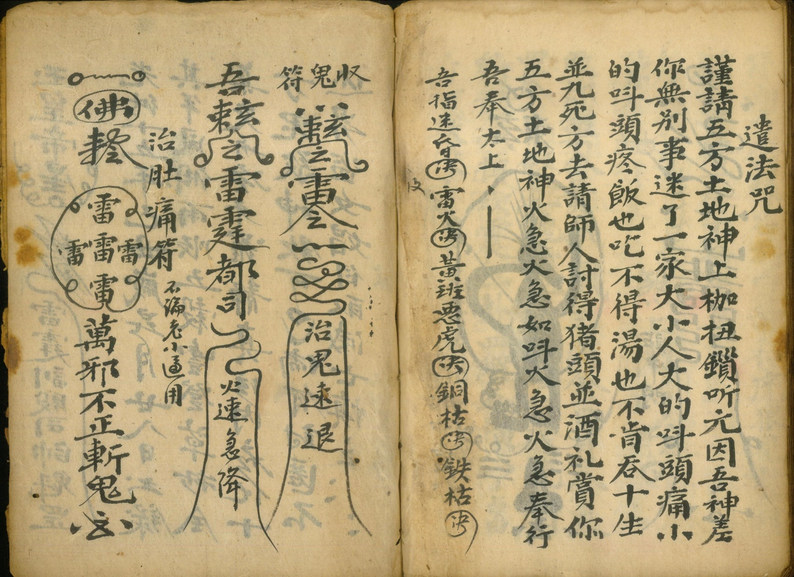 遣法咒
謹請五方土地神上枷扭鎖听元因吾神差
你無别事迷了一家大小人大的呌頭痛小
的呌頭疼飯也吃不得湯也不肯吞十生
並九死方去請師人討得猪頭並酒礼賞你
五方土地神火急火急如呌火急火急奉行
吾奉太上
吾指迷昏 雷火 黄班悪虎 銅枯 鉄枯
收鬼符
雷令
治鬼速退
吾
之雷霆都司
火速急降
治肚痛符
不論老小通用
佛
雷
雷雷雷
雷
萬邪不正斬鬼